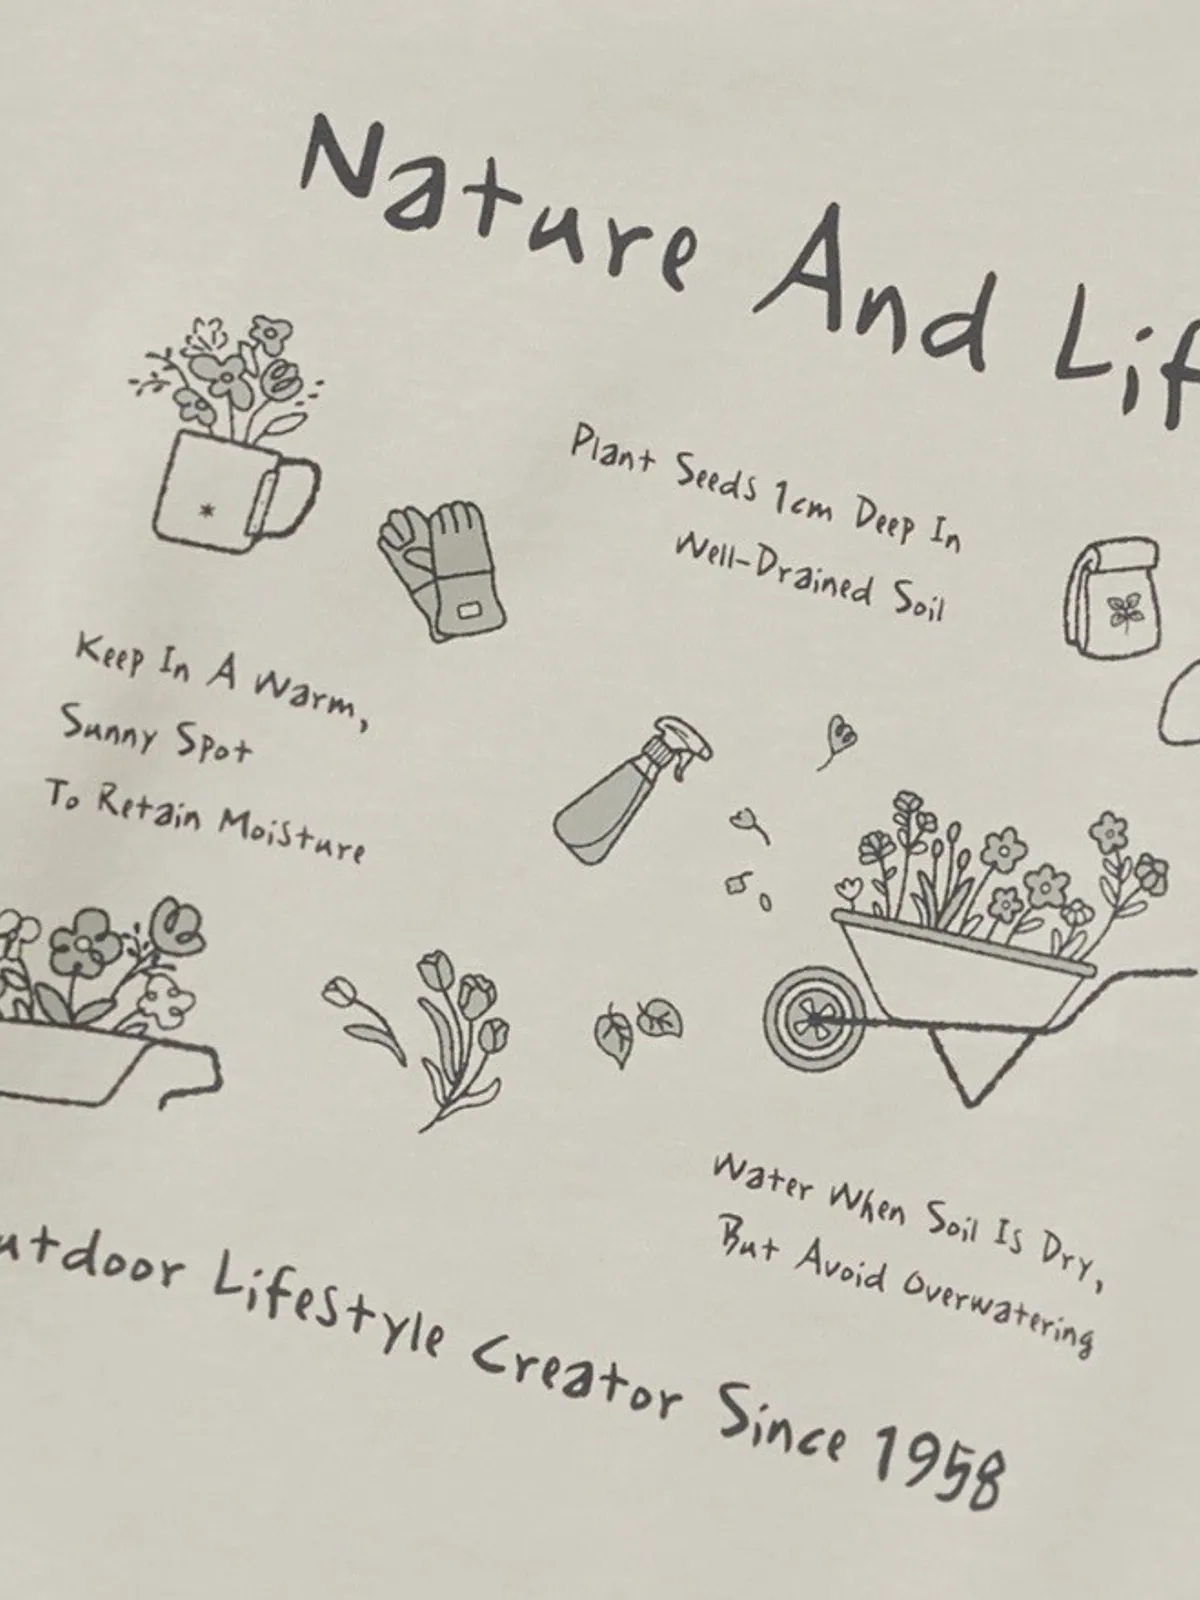 Nature And Lif
Plant Seeds 1cm Deep In
Well-Drained Soil
Keep In A Warm,
Sunny Spot
To Retain Moisture
Water When Soil Is Dry,
But Avoid Overwatering
utdoor Lifestyle Creator Since 1958